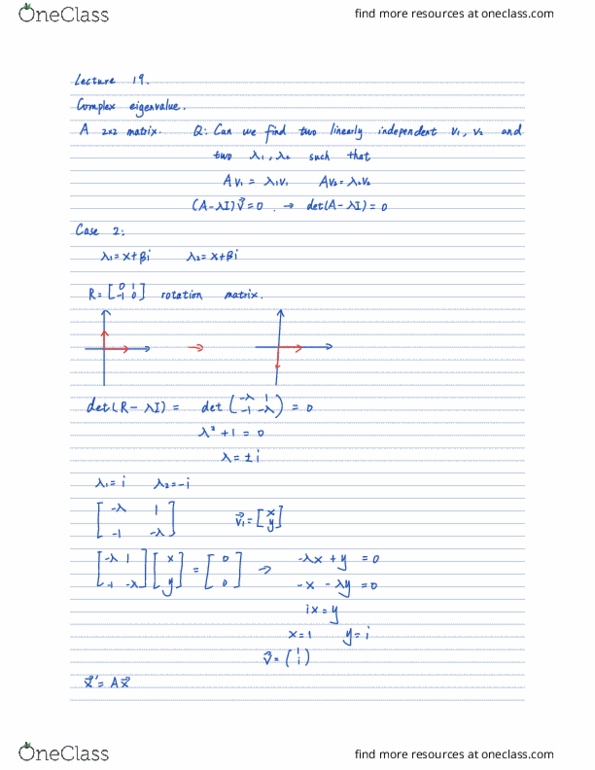 OneClass
find more resources at oneclass.com
Lecture 19.
Complex eigenvalue.
A 2x2 matrix. Q: Can we find two linearly independent v₁, v₂ and
two λ₁, λ₂ such that
Av₁ = λ₁v₁ Av₂ = λ₂v₂
(A-λI)v⃗ = 0 . → det(A-λI) = 0
Case 2:
λ₁ = x+βi λ₂ = x+βi
R = [0 1; -1 0] rotation matrix.
det(R-λI) = det(-λ 1; -1 -λ) = 0
λ² + 1 = 0
λ = ±i
λ₁ = i λ₂ = -i
[-λ 1; -1 -λ] v⃗₁ = [x; y]
[-λ 1; -1 -λ] [x; y] = [0; 0] → -λx + y = 0
-x - λy = 0
ix = y
x = 1 y = i
v⃗ = (1; i)
x⃗' = Ax⃗
OneClass
find more resources at oneclass.com